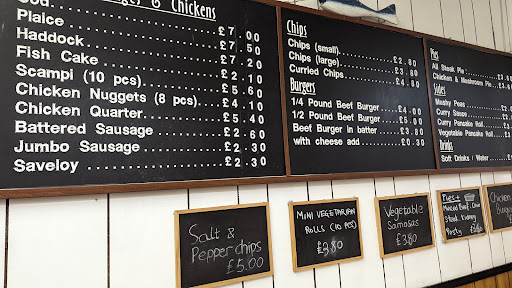 & Chickens
Cod £7.00
Plaice £7.50
Haddock £7.20
Fish Cake £2.10
Scampi (10 pcs) £5.60
Chicken Nuggets (8 pcs) £4.10
Chicken Quarter £5.40
Battered Sausage £2.60
Jumbo Sausage £2.30
Saveloy £2.30
Chips
Chips (small) £2.80
Chips (large) £3.80
Curried Chips £4.80
Burgers
1/4 Pound Beef Burger £4.00
1/2 Pound Beef Burger £5.00
Beef Burger in batter £3.80
with cheese add £0.30
Pies
All Steak Pie
Chicken & Mushroom Pie
Sides
Mushy Peas
Curry Sauce
Curry Pancake Roll
Vegetable Pancake Roll
Drinks
Soft Drinks / Water
Salt &
Pepper chips
£5.00
MINI VEGETARIAN
ROLLS (10 PCS)
£3.80
Vegetable
Samosas
£3.80
Pies
Minced Beef, Onion
Steak, Kidney
Pasty
Chicken
Burger